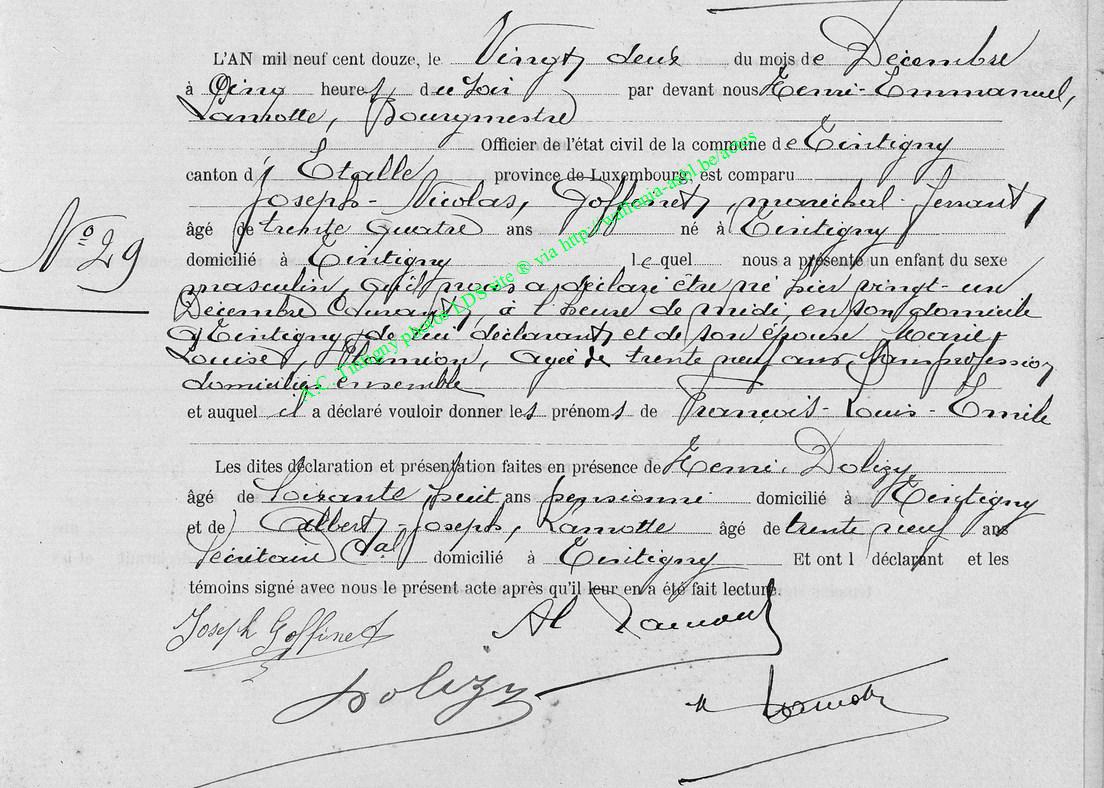 L'AN mil neuf cent douze, le Vingt deux du mois de Décembre
à Cinq heures, du soir par devant nous Henri-Emmanuel,
Lamotte, Bourgmestre
Officier de l'état civil de la commune de Tintigny
canton d' Etalle province de Luxembourg, est comparu
Joseph-Nicolas, Goffinet, maréchal-ferrant,
Nº 29
âgé de trente quatre ans né à Tintigny
domicilié à Tintigny lequel nous a présenté un enfant du sexe
masculin, qu'il nous a déclaré être né hier vingt-un
Décembre courant, à l'heure de midi, en son domicile
à Tintigny, de lui déclarant et de son épouse Marie
Louise, agée de trente neuf ans, sans profession,
domiciliés ensemble
et auquel il a déclaré vouloir donner les prénoms de François-Louis-Emile
Les dites déclaration et présentation faites en présence de Henri, Dolizy
âgé de soixante huit ans pensionné domicilié à Tintigny
et de Albert-Joseph, Lamotte âgé de trente neuf ans
Secrétaire Cal domicilié à Tintigny Et ont l déclarant et les
témoins signé avec nous le présent acte après qu'il leur en a été fait lecture.
Joseph Goffinet Al Lamotte
Dolizy H Lamotte
A.C. Tintigny photos LDS site ® via http://wallonia-asbl.be/actes